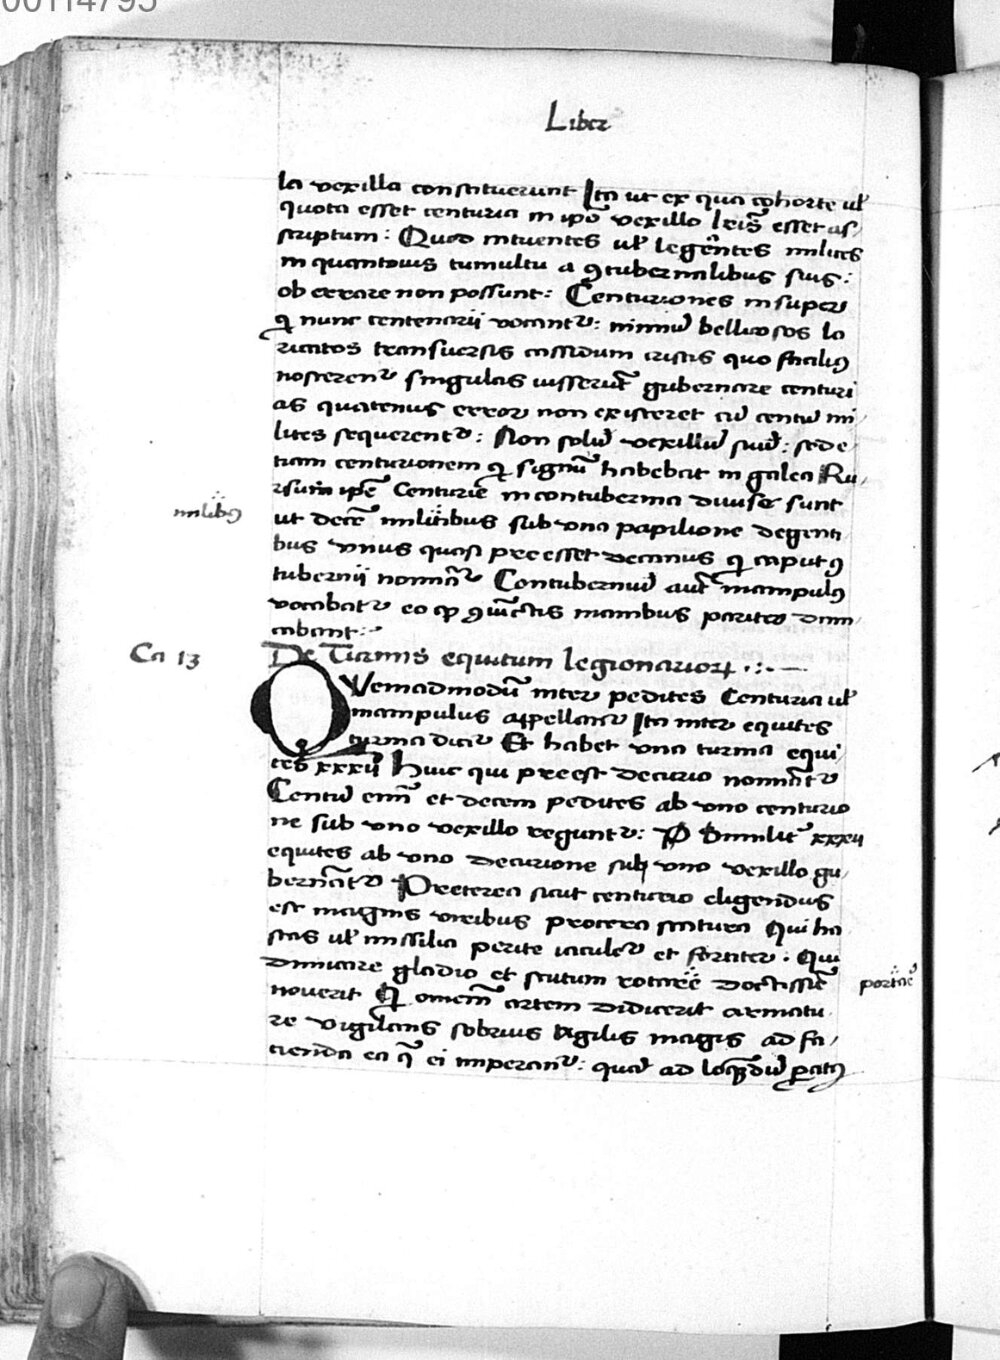 00114795
Liber
la vexilla constituerunt Ita ut ex qua cohorte ul̛
quota esset centuria in ip̄o vexillo lr̄is esset as/
scriptum: Quod intuentes ul̛ legentes milites
in quantouis tumultu a ꝯtubernalibus suis:
ob errare non possunt: Centuriones insuper
qͥ nunc centenarii vocantᷣ: nimiū bellicosos lo
ricatos transuersis cassidum cristis quo faciliꝯ
noscerentᷣ singulas iusserūt gubernare centuri
as quatenus error non existeret cū centū mi/
lites sequerentᷣ: Non solū vexillū suū: sed e/
tiam centurionem qͥ signū habebat in galea Ru/
rsum ip̄e Centurie in contubernia diuise sunt
ut decē militibus sub vna papilione degenti
milibꝯ
bus vnus quasi preesset decanus qͥ caput ꝯ
tubernii nominat᷑ Contuberniū aut̄ manipulꝯ
vocabatᷣ eo qꝫ ꝯiūctis manibus pariter dimi/
cabant:
Ca 13
De Turmis equitum legionarioꝝ
QVemadmodū inter pedites Centuria ul̛
manipulus appellatᷣ Ita inter equites
turma dicitᷣ Et habet vna turma equi/
tes xxxii Huic qui preest decurio nominātᷣ
Centū enī et decem pedites ab vno centurio
ne sub vno vexillo reguntᷣ: simılit̄ xxxii
equites ab vno decurione sub vno vexillo gu/
bernātᷣ Preterea sicut centurio eligendus
est magnis viribus procera statura Qui ha
stas ul̛ missilia perite iaculetᷣ et fortiter. Qui
dimicare gladio et scutum rotare doctissīe
nouerit Qͥ omnem artem didicerit armatu
re vigilans sobrius agilis magis ad fa/
cienda ea q̄ ei imperantᷣ: quā ad loquēdū ꝑatꝯ